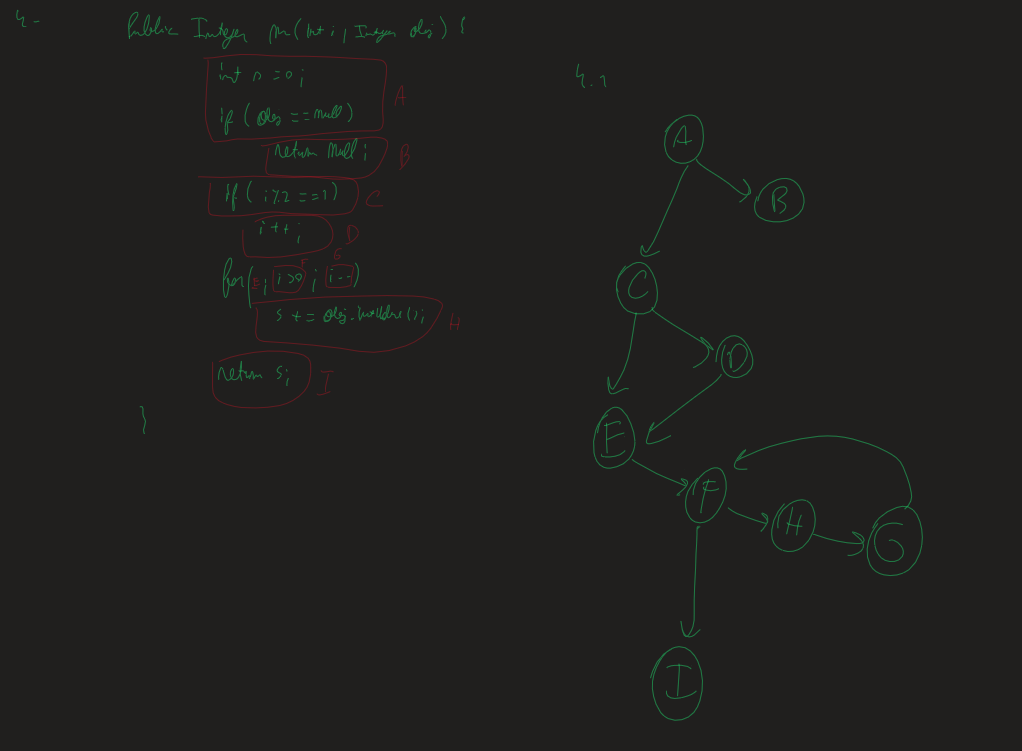 4-
Public Integer m(int i, Integer obj) {
int s = 0;
if (obj == null) A
return null; B
if (i%2 == 1) C
i++; D
F G
for(E; i>0; i--)
s += obj.intValue(); H
return s; I
}
4.1
A
B
C
D
E
F
H
G
I